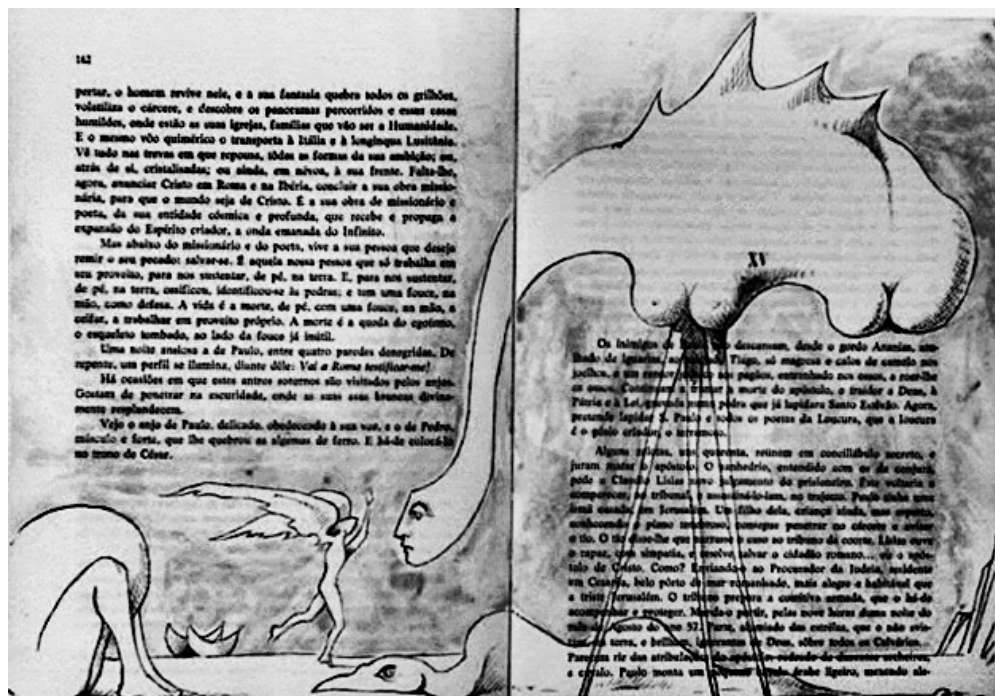 162
pertar, o homem revive nele, e a sua fantasia quebra todos os grilhões,
volatiliza o cárcere, e descobre os panoramas percorridos e essas casas
humildes, onde estão as suas igrejas, famílias que vão ser a Humanidade.
E o mesmo vôo quimérico o transporta à Itália e à longínqua Lusitânia.
Vê tudo nas trevas em que repousa, tôdas as formas da sua ambição; ou,
atrás de si, cristalisadas; ou ainda, em névoa, à sua frente. Falta-lhe,
agora, anunciar Cristo em Roma e na Ibéria, concluir a sua obra missio-
nária, para que o mundo seja de Cristo. É a sua obra de missionário e
poeta, da sua entidade cósmica e profunda, que recebe e propaga a
expansão do Espírito criador, a onda emanada do Infinito.
Mas abaixo do missionário e do poeta, vive a sua pessoa que deseja
remir o seu pecado: salvar-se. É aquela nossa pessoa que só trabalha em
seu proveito, para nos sustentar, de pé, na terra. E, para nos sustentar,
de pé, na terra, ossificou, identificou-se às pedras; e tem uma fouce, na
mão, como defesa. A vida é a morte, de pé, com uma fouce, na mão, a
ceifar, a trabalhar em proveito próprio. A morte é a queda do egoísmo,
o esqueleto tombado, ao lado da fouce já inútil.
Uma noite ansiosa a de Paulo, entre quatro paredes denegridas. De
repente, um perfil se ilumina, diante dêle: Vai a Roma testificar-me!
Há ocasiões em que estes antros soternos são visitados pelos anjos.
Gostam de penetrar na escuridade, onde as suas asas brancas divina-
mente resplandecem.
Vejo o anjo de Paulo, delicado, obedecendo à sua voz, e o de Pedro,
músculo e forte, que lhe quebrou as algemas de ferro. E há-de colocá-lo
no trono de César.
XV
Os inimigos de descansam, desde o gordo Ananias,
lhado de iguarias, Tiago, só magreza e calos de camelo nos
joelhos, e um rancor aos pagãos, entranhado nos ossos, a roer-lhe
os ossos. Continuam a tramar a morte do apóstolo, o traidor a Deus, à
Pátria e à Lei, gravada numa pedra que já lapidara Santo Estêvão. Agora,
pretende lapidar S. Paulo e todos os poetas da Loucura, que a loucura
é o génio criador, o terramoto.
Alguns zelotas, uns quarenta, reúnem em conciliábulo secreto, e
juram matar o apóstolo. O sanhedrio, entendido com os da conjura,
pede a Claudio Lisias novo julgamento do prisioneiro. Êste voltaria a
comparecer, no tribunal, e assassiná-lo-iam, no trajecto. Paulo tinha uma
irmã casada, em Jerusalém. Um filho dela, criança ainda, mas esperto,
conhecendo o plano tenebroso, consegue penetrar no cárcere e avisar
o tio. O tio disse-lhe que narrasse o caso ao tribuno da coorte. Lisias ouve
o rapaz, com simpatia, e resolve salvar o cidadão romano... ou o após-
tolo de Cristo. Como? Enviando-o ao Procurador da Judeia, residente
em Cesareia, belo pôrto de mar romanisado, mais alegre e habitável que
a triste Jerusalém. O tribuno prepara a comitiva armada, que o há-de
acompanhar e proteger. Manda-o partir, pelas nove horas duma noite do
mês de Agosto do ano 57. Parte, alumiado das estrêlas, que o não
a terra, e brilham, ignorantes de Deus, sôbre todos os Calvários.
Parecem rir das atribulações do apóstolo, rodeado de duzentos archeiros,
a cavalo. Paulo monta um ligeiro, metendo